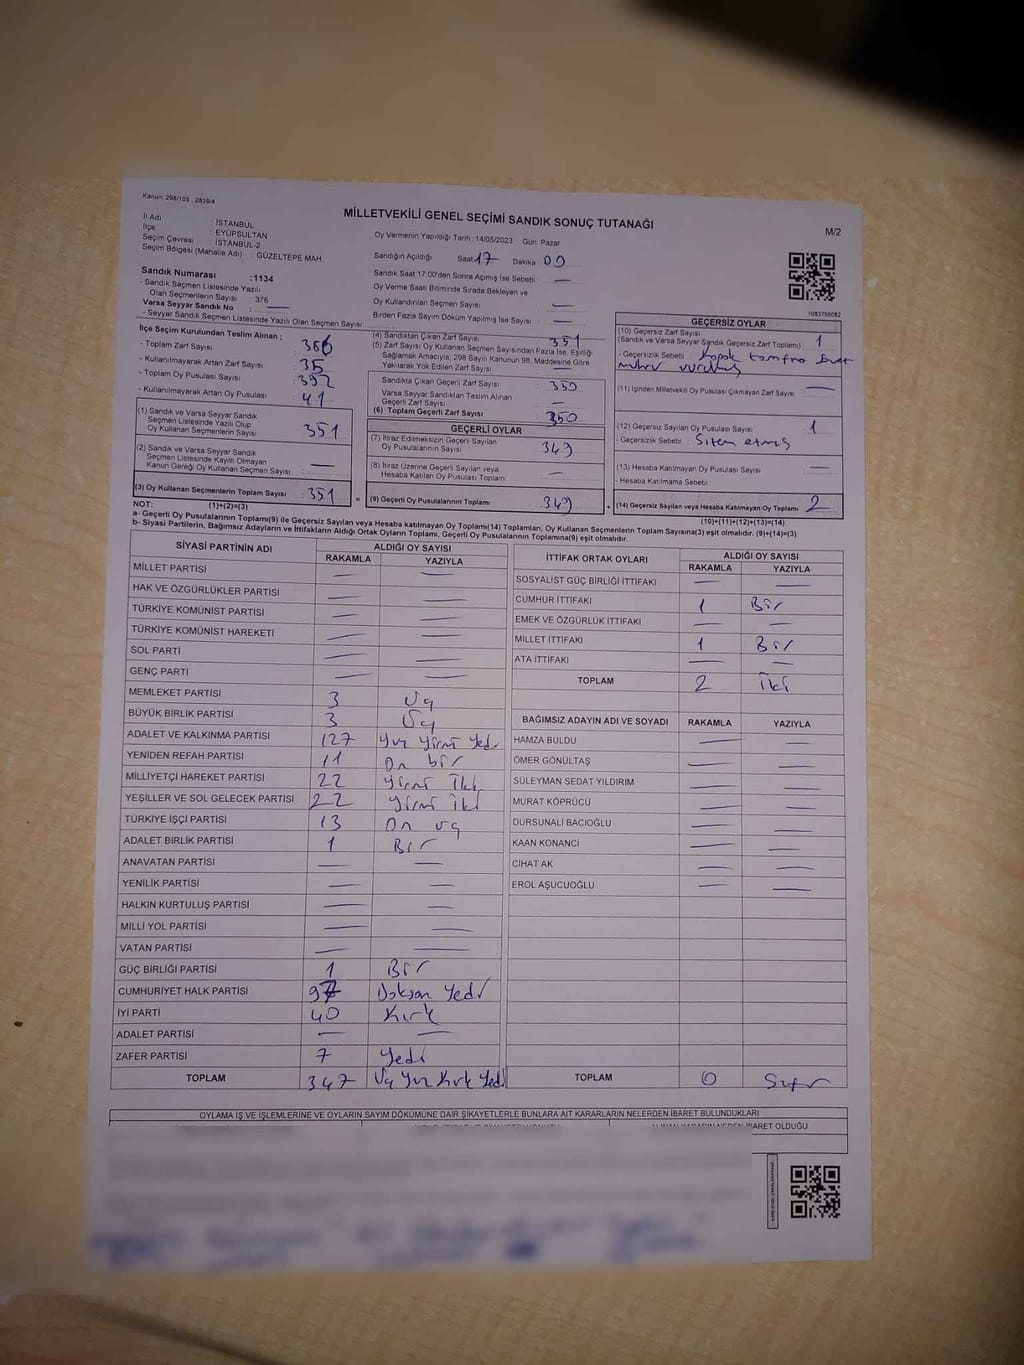 Kanun: 298/105 , 2839/4
MİLLETVEKİLİ GENEL SEÇİMİ SANDIK SONUÇ TUTANAĞI
M/2
İl Adı : İSTANBUL
İlçe : EYÜPSULTAN
Seçim Çevresi : İSTANBUL-2
Seçim Bölgesi (Mahalle Adı) : GÜZELTEPE MAH
Sandık Numarası :1134
- Sandık Seçmen Listesinde Yazılı
Olan Seçmenlerin Sayısı : 376
Varsa Seyyar Sandık No : —
- Seyyar Sandık Seçmen Listesinde Yazılı Olan Seçmen Sayısı :
Oy Vermenin Yapıldığı Tarih :14/05/2023 Gün: Pazar
Sandığın Açıldığı Saat 17 Dakika 00
Sandık Saat 17:00'den Sonra Açımış İse Sebebi : —
Oy Verme Saati Bitiminde Sırada Bekleyen ve
Oy Kullandırılan Seçmen Sayısı : —
Birden Fazla Sayım Döküm Yapılmış İse Sayısı : —
1083788082
İlçe Seçim Kurulundan Teslim Alınan :
- Toplam Zarf Sayısı : 386
- Kullanılmayarak Artan Zarf Sayısı : 35
- Toplam Oy Pusulası Sayısı : 392
- Kullanılmayarak Artan Oy Pusulası : 41
(1) Sandık ve Varsa Seyyar Sandık
Seçmen Listesinde Yazılı Olup
Oy Kullanan Seçmenlerin Sayısı : 351
(2) Sandık ve Varsa Seyyar Sandık
Seçmen Listesinde Kaydı Olmayan
Kanun Gereği Oy Kullanan Seçmen Sayısı : —
(3) Oy Kullanan Seçmenlerin Toplam Sayısı : 351
(4) Sandıktan Çıkan Zarf Sayısı : 351
(5) Zarf Sayısı Oy Kullanan Seçmen Sayısından Fazla İse, Eşitliği
Sağlamak Amacıyla, 298 Sayılı Kanunun 98. Maddesine Göre
Yakılarak Yok Edilen Zarf Sayısı : —
Sandıkta Çıkan Geçerli Zarf Sayısı : 350
Varsa Seyyar Sandıktan Teslim Alınan
Geçerli Zarf Sayısı : —
(6) Toplam Geçerli Zarf Sayısı : 350
GEÇERLİ OYLAR
(7) İtiraz Edilmeksizin Geçerli Sayılan
Oy Pusulalarının Sayısı : 349
(8) İtiraz Üzerine Geçerli Sayılan veya
Hesaba Katılan Oy Pusulası Toplamı : —
= (9) Geçerli Oy Pusulalarının Toplamı : 349
GEÇERSİZ OYLAR
(10) Geçersiz Zarf Sayısı
(Sandık ve Varsa Seyyar Sandık Geçersiz Zarf Toplamı) : 1
- Geçersizlik Sebebi :
mühür vurulmuş
(11) İçinden Milletvekili Oy Pusulası Çıkmayan Zarf Sayısı : —
(12) Geçersiz Sayılan Oy Pusulası Sayısı : 1
- Geçersizlik Sebebi : Sitem etmiş
(13) Hesaba Katılmayan Oy Pusulası Sayısı : —
- Hesaba Katılmama Sebebi :
+ (14) Geçersiz Sayılan veya Hesaba Katılmayan Oy Toplamı : 2
NOT: (1)+(2)=(3)
(10)+(11)+(12)+(13)=(14)
a- Geçerli Oy Pusulalarının Toplamı(9) ile Geçersiz Sayılan veya Hesaba katılmayan Oy Toplamı(14) Toplamları, Oy Kullanan Seçmenlerin Toplam Sayısına(3) eşit olmalıdır. (9)+(14)=(3)
b- Siyasi Partilerin, Bağımsız Adayların ve İttifakların Aldığı Ortak Oyların Toplamı, Geçerli Oy Pusulalarının Toplamına(9) eşit olmalıdır.
SİYASİ PARTİNİN ADI ALDIĞI OY SAYISI
RAKAMLA YAZIYLA
MİLLET PARTİSİ — —
HAK VE ÖZGÜRLÜKLER PARTİSİ — —
TÜRKİYE KOMÜNİST PARTİSİ — —
TÜRKİYE KOMÜNİST HAREKETİ — —
SOL PARTİ — —
GENÇ PARTİ — —
MEMLEKET PARTİSİ 3 Üç
BÜYÜK BİRLİK PARTİSİ 3 Üç
ADALET VE KALKINMA PARTİSİ 127 Yüz Yirmi Yedi
YENİDEN REFAH PARTİSİ 11 On bir
MİLLİYETÇİ HAREKET PARTİSİ 22 Yirmi İki
YEŞİLLER VE SOL GELECEK PARTİSİ 22 Yirmi İki
TÜRKİYE İŞÇİ PARTİSİ 13 On üç
ADALET BİRLİK PARTİSİ 1 Bir
ANAVATAN PARTİSİ — —
YENİLİK PARTİSİ — —
HALKIN KURTULUŞ PARTİSİ — —
MİLLİ YOL PARTİSİ — —
VATAN PARTİSİ — —
GÜÇ BİRLİĞİ PARTİSİ 1 Bir
CUMHURİYET HALK PARTİSİ 97 Doksan Yedi
İYİ PARTİ 40 Kırk
ADALET PARTİSİ — —
ZAFER PARTİSİ 7 Yedi
TOPLAM 347 Üç Yüz Kırk Yedi
İTTİFAK ORTAK OYLARI ALDIĞI OY SAYISI
RAKAMLA YAZIYLA
SOSYALİST GÜÇ BİRLİĞİ İTTİFAKI — —
CUMHUR İTTİFAKI 1 Bir
EMEK VE ÖZGÜRLÜK İTTİFAKI — —
MİLLET İTTİFAKI 1 Bir
ATA İTTİFAKI — —
TOPLAM 2 İki
BAĞIMSIZ ADAYIN ADI VE SOYADI RAKAMLA YAZIYLA
HAMZA BULDU — —
ÖMER GÖNÜLTAŞ — —
SÜLEYMAN SEDAT YILDIRIM — —
MURAT KÖPRÜCÜ — —
DURSUNALİ BACIOĞLU — —
KAAN KONANCİ — —
CİHAT AK — —
EROL AŞUCUOĞLU — —
TOPLAM 0 Sıfır
OYLAMA İŞ VE İŞLEMLERİNE VE OYLARIN SAYIM DÖKÜMÜNE DAİR ŞİKAYETLERLE BUNLARA AİT KARARLARIN NELERDEN İBARET BULUNDUKLARI
ALINAN KARARIN NEDEN İBARET OLDUĞU